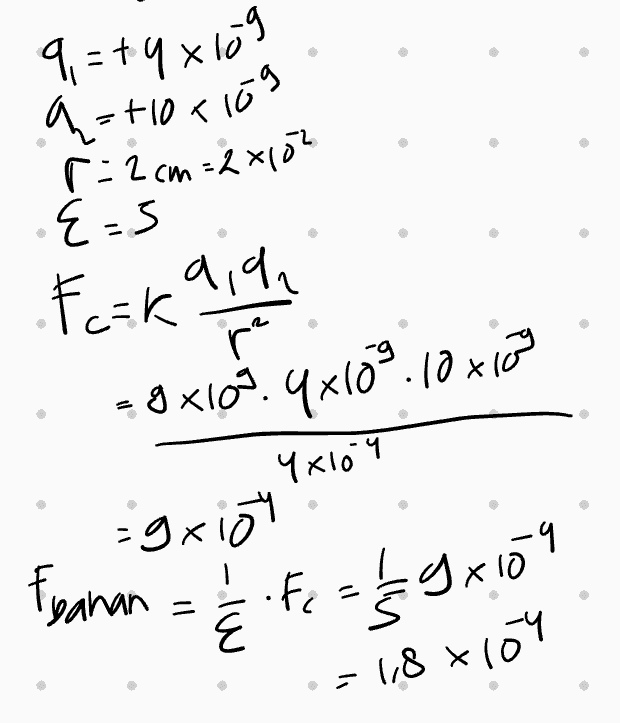 q₁ = +4 × 10⁻⁹
q₂ = +10 × 10⁻⁹
r = 2 cm = 2 × 10⁻²
ε = 5
Fc = k q₁q₂ / r²
= 9 × 10⁹ . 4 × 10⁻⁹ . 10 × 10⁻⁹ / 4 × 10⁻⁴
= 9 × 10⁻⁴
Fbahan = 1/ε . Fc = 1/5 9 × 10⁻⁴
= 1,8 × 10⁻⁴